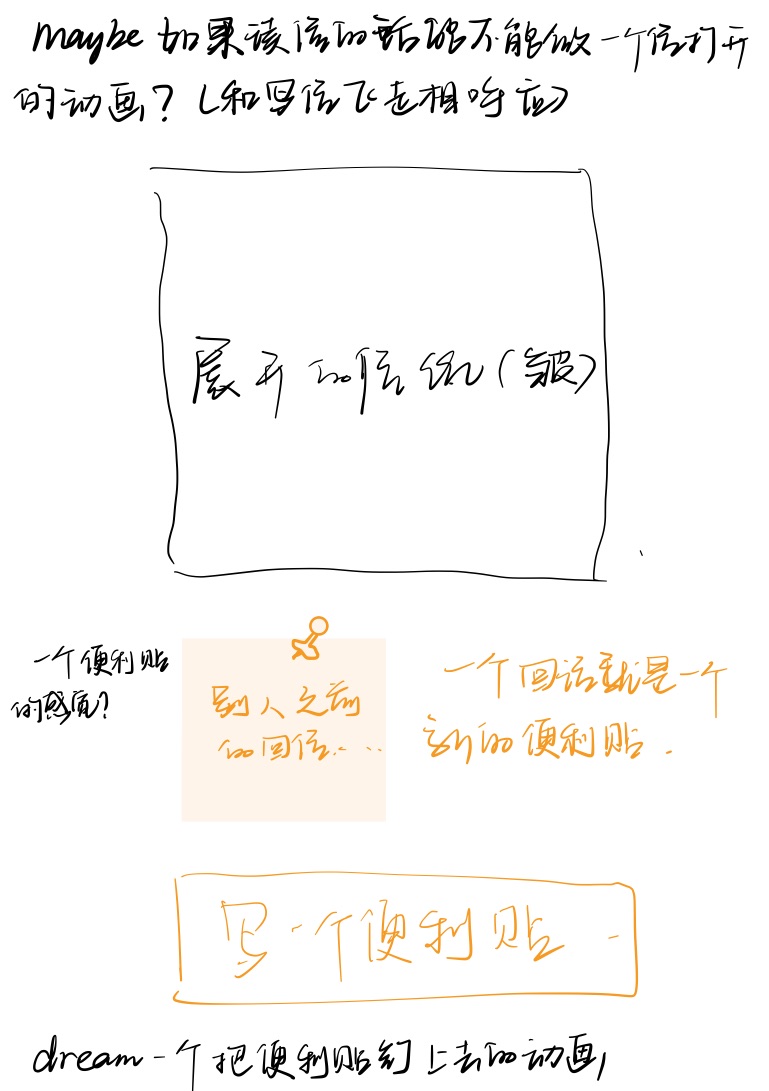 maybe 如果读信的话能不能做一个信打开
的动画？（和写信飞走相呼应）
展开的信纸（皱）
一个便利贴
的感觉？
别人之前
的回信……
一个回话就是一个
新的便利贴.
写一个便利贴
dream 一个把便利贴钉上去的动画,